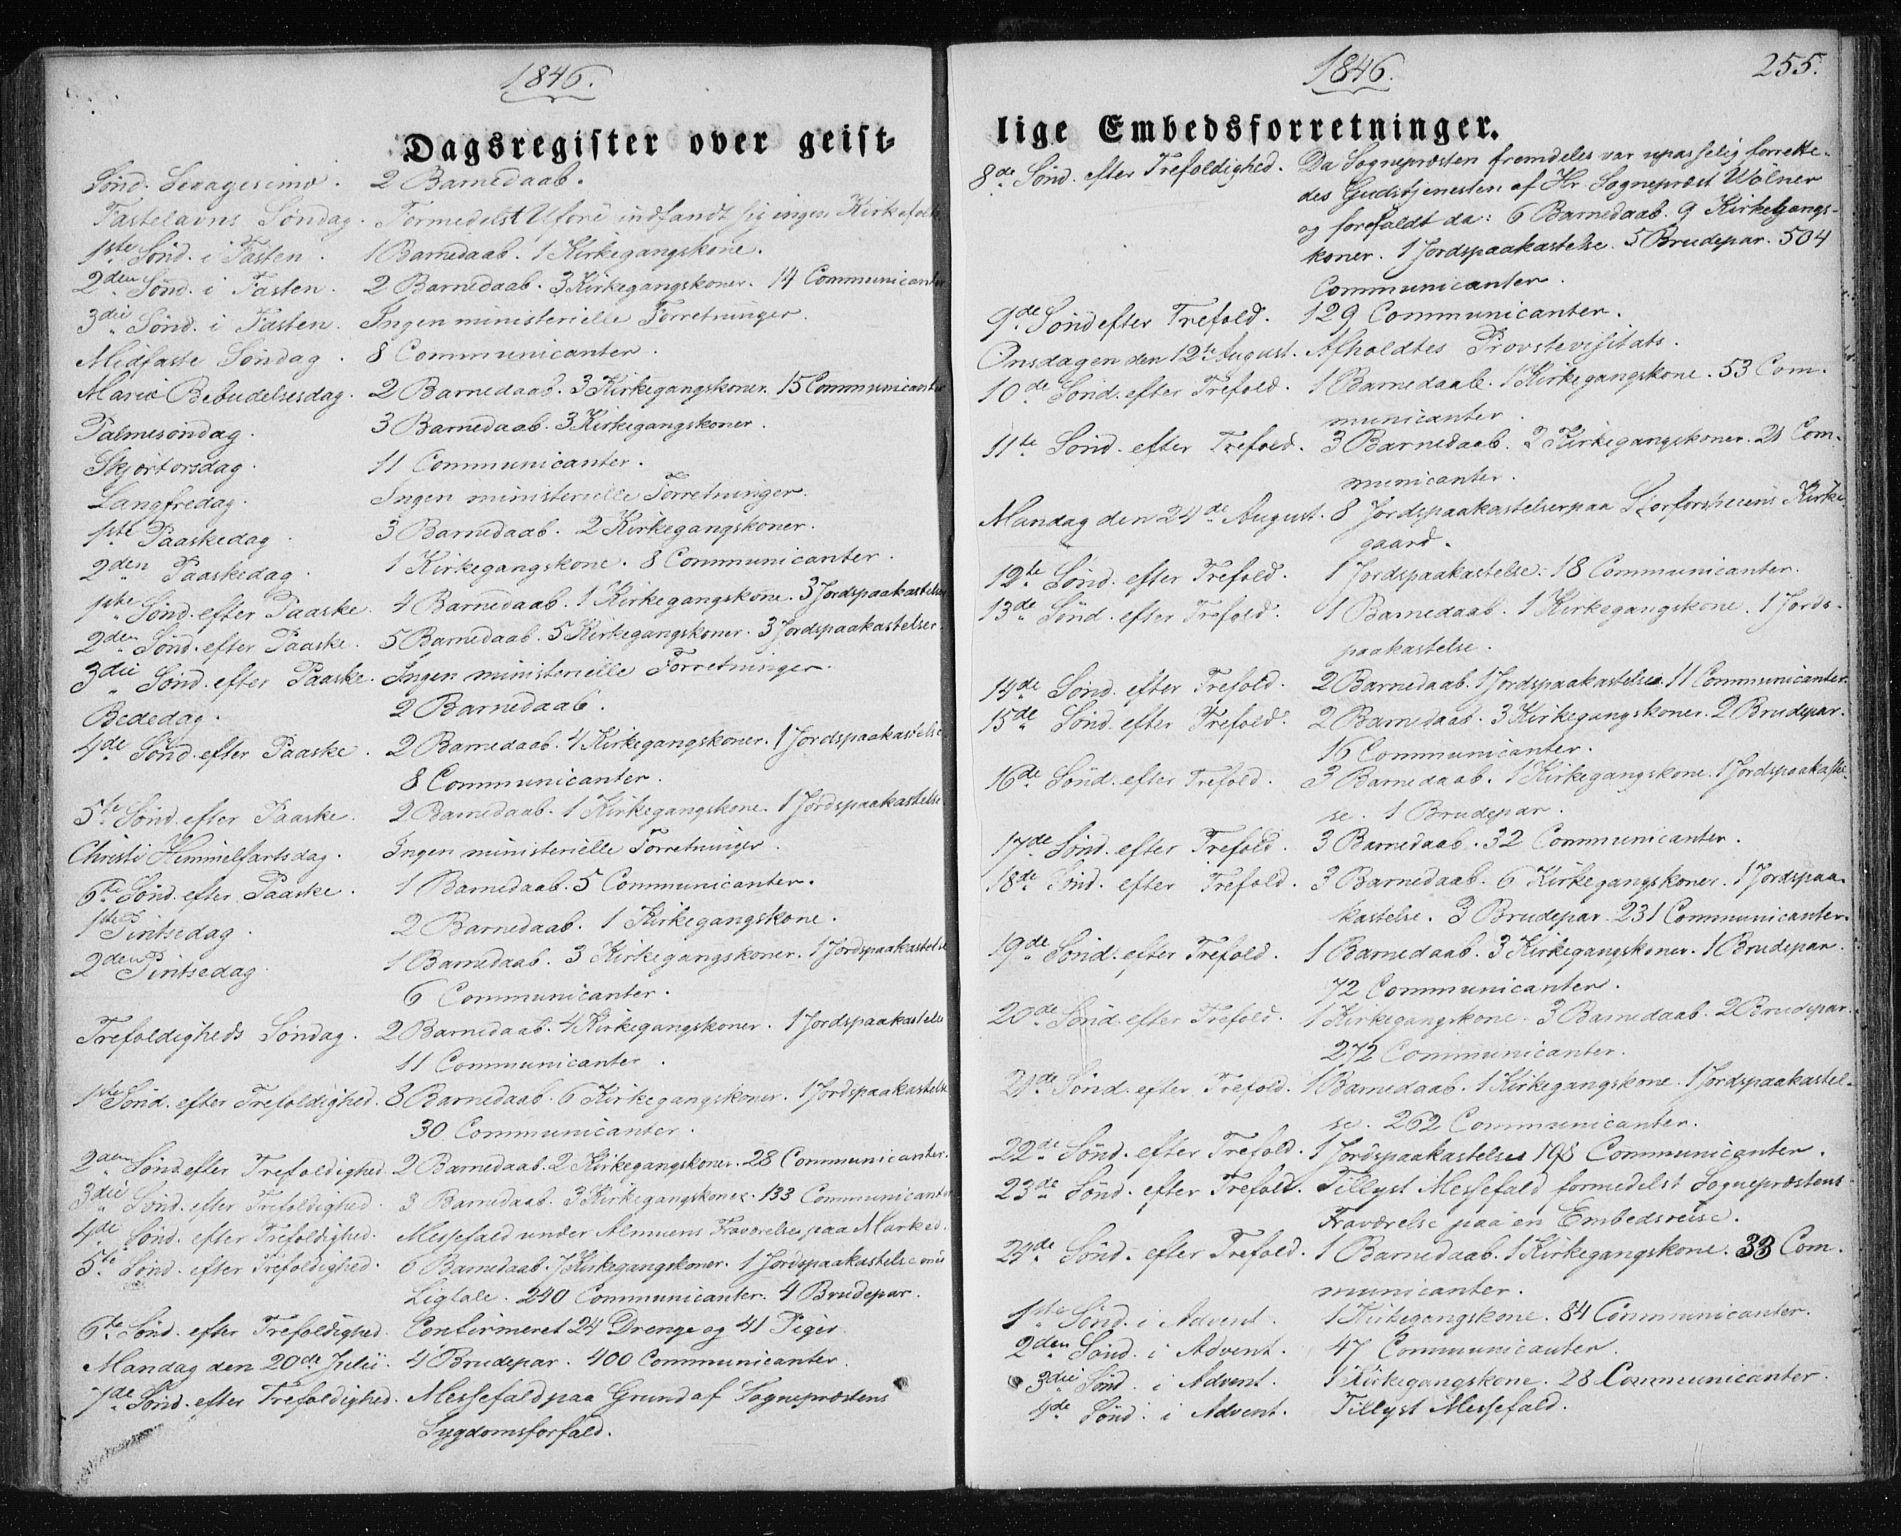 1846.
Dagsregister over geist-
Sønd. Sexagesima. 2 Barnedaab.
Fastelavns Søndag. Formedelst Uføre indfandt sig ingen Kirkefolk
1ste Sønd. i Fasten. 1 Barnedaab. 1 Kirkegangskone.
2den Sønd. i Fasten. 2 Barnedaab. 3 Kirkegangskoner. 14 Communicanter
3die Sønd. i Fasten. Ingen ministerielle Forretninger.
Midfaste Søndag. 8 Communicanter.
Mariæ Bebudelsesdag. 2 Barnedaab. 3 Kirkegangskoner. 15 Communicanter
Palmesøndag. 3 Barnedaab. 3 Kirkegangskoner.
Skjørtorsdag. 11 Communicanter.
Langfredag. Ingen ministerielle Forretninger.
1ste Paaskedag. 3 Barnedaab. 2 Kirkegangskoner.
2den Paaskedag. 1 Kirkegangskone. 8 Communicanter.
1ste Sønd. efter Paaske. 4 Barnedaab. 1 Kirkegangskone. 3 Jordspaakastelser
2den Sønd. efter Paaske. 5 Barnedaab. 5 Kirkegangskoner. 3 Jordspaakastelser.
3die Sønd. efter Paaske. Ingen ministerielle Forretninger.
Bededag. 2 Barnedaab.
4de Sønd. efter Paaske. 2 Barnedaab. 4 Kirkegangskoner. 1 Jordspaakastelse
8 Communicanter.
5te Sønd. efter Paaske. 2 Barnedaab. 1 Kirkegangskone. 1 Jordspaakastelse
Christi Himmelfartsdag. Ingen ministerielle Forretninger.
6te Sønd. efter Paaske. 1 Barnedaab. 5 Communicanter.
1ste Pintsedag. 2 Barnedaab. 1 Kirkegangskone.
2den Pintsedag. 1 Barnedaab. 3 Kirkegangskoner. 1 Jordspaakastelse
6 Communicanter.
Trefoldigheds Søndag. 2 Barnedaab. 4 Kirkegangskoner. 1 Jordspaakastelse
11 Communicanter.
1ste Sønd. efter Trefoldighed. 8 Barnedaab. 6 Kirkegangskoner. 1 Jordspaakastelse
30 Communicanter.
2den Sønd. efter Trefoldighed. 2 Barnedaab. 2 Kirkegangskoner. 28 Communicanter.
3die Sønd. efter Trefoldighed. 3 Barnedaab. 3 Kirkegangskoner. 133 Communicanter
4de Sønd. efter Trefoldighed. Messefald under Almuens Fraværelse paa Marked.
5te Sønd. efter Trefoldighed. 6 Barnedaab. 7 Kirkegangskoner. 1 Jordspaakastelse med
Ligtale. 240 Communicanter. 4 Brudepar.
6te Sønd. efter Trefoldighed. Confirmeret 24 Drenge og 41 Piger.
Mandag den 20de Julii. 4 Brudepar. 400 Communicanter.
7de Sønd. efter Trefoldighed. Messefald paa Grund af Sognepræstens
Sygdomsforfald.
1846.
255.
lige Embedsforretninger.
8de Sønd. efter Trefoldighed. Da Sognepræsten fremdeles var upasselig forrette-
des Gudstjenesten af Hr. Sognepræst Wolner
og forefaldt da: 6 Barnedaab. 9 Kirkegangs-
koner. 1 Jordspaakastelse. 5 Brudepar. 504
Communicanter.
9de Sønd efter Trefold. 129 Communicanter.
Onsdagen den 12te August. Afholdtes Provstevisitats.
10de Sønd. efter Trefold. 1 Barnedaab. 1 Kirkegangskone. 53 Com-
municanter.
11te Sønd. efter Trefold. 3 Barnedaab. 2 Kirkegangskoner. 21 Com-
municanter.
Mandag den 24de August. 8 Jordspaakastelser paa Storforsheiens Kirke-
gaard.
12te Sønd. efter Trefold. 1 Jordspaakastelse. 18 Communicanter.
13de Sønd. efter Trefold. 1 Barnedaab. 1 Kirkegangskone. 1 Jords-
paakastelse.
14de Sønd. efter Trefold. 2 Barnedaab. 1 Jordspaakastelse. 11 Communicanter.
15de Sønd. efter Trefold. 2 Barnedaab. 3 Kirkegangskoner. 2 Brudepar.
16 Communicanter.
16de Sønd. efter Trefold. 3 Barnedaab. 1 Kirkegangskone. 1 Jordspaakastel-
se. 1 Brudepar.
17de Sønd. efter Trefold. 3 Barnedaab. 32 Communicanter.
18de Sønd. efter Trefold. 3 Barnedaab. 6 Kirkegangskoner. 1 Jordspaa-
kastelse. 3 Brudepar. 231 Communicanter.
19de Sønd. efter Trefold. 1 Barnedaab. 3 Kirkegangskoner. 1 Brudepar.
72 Communicanter.
20de Sønd. efter Trefold. 1 Kirkegangskone. 3 Barnedaab. 2 Brudepar.
272 Communicanter.
21de Sønd. efter Trefold. 1 Barnedaab. 1 Kirkegangskone. 1 Jordspaakastel-
se. 262 Communicanter.
22de Sønd. efter Trefold. 1 Jordspaakastelse 198 Communicanter.
23de Sønd. efter Trefold. Tillyst Messefald formedelst Sognepræstens
Fraværelse paa en Embedsreise.
24de Sønd. efter Trefold. 1 Barnedaab. 1 Kirkegangskone. 33 Com-
municanter.
1ste Sønd. i Advent. 1 Kirkegangskone. 84 Communicanter.
2den Sønd. i Advent. 47 Communicanter.
3die Sønd. i Advent. 1 Kirkegangskone. 28 Communicanter.
4de Sønd. i Advent. Tillyst Messefald.